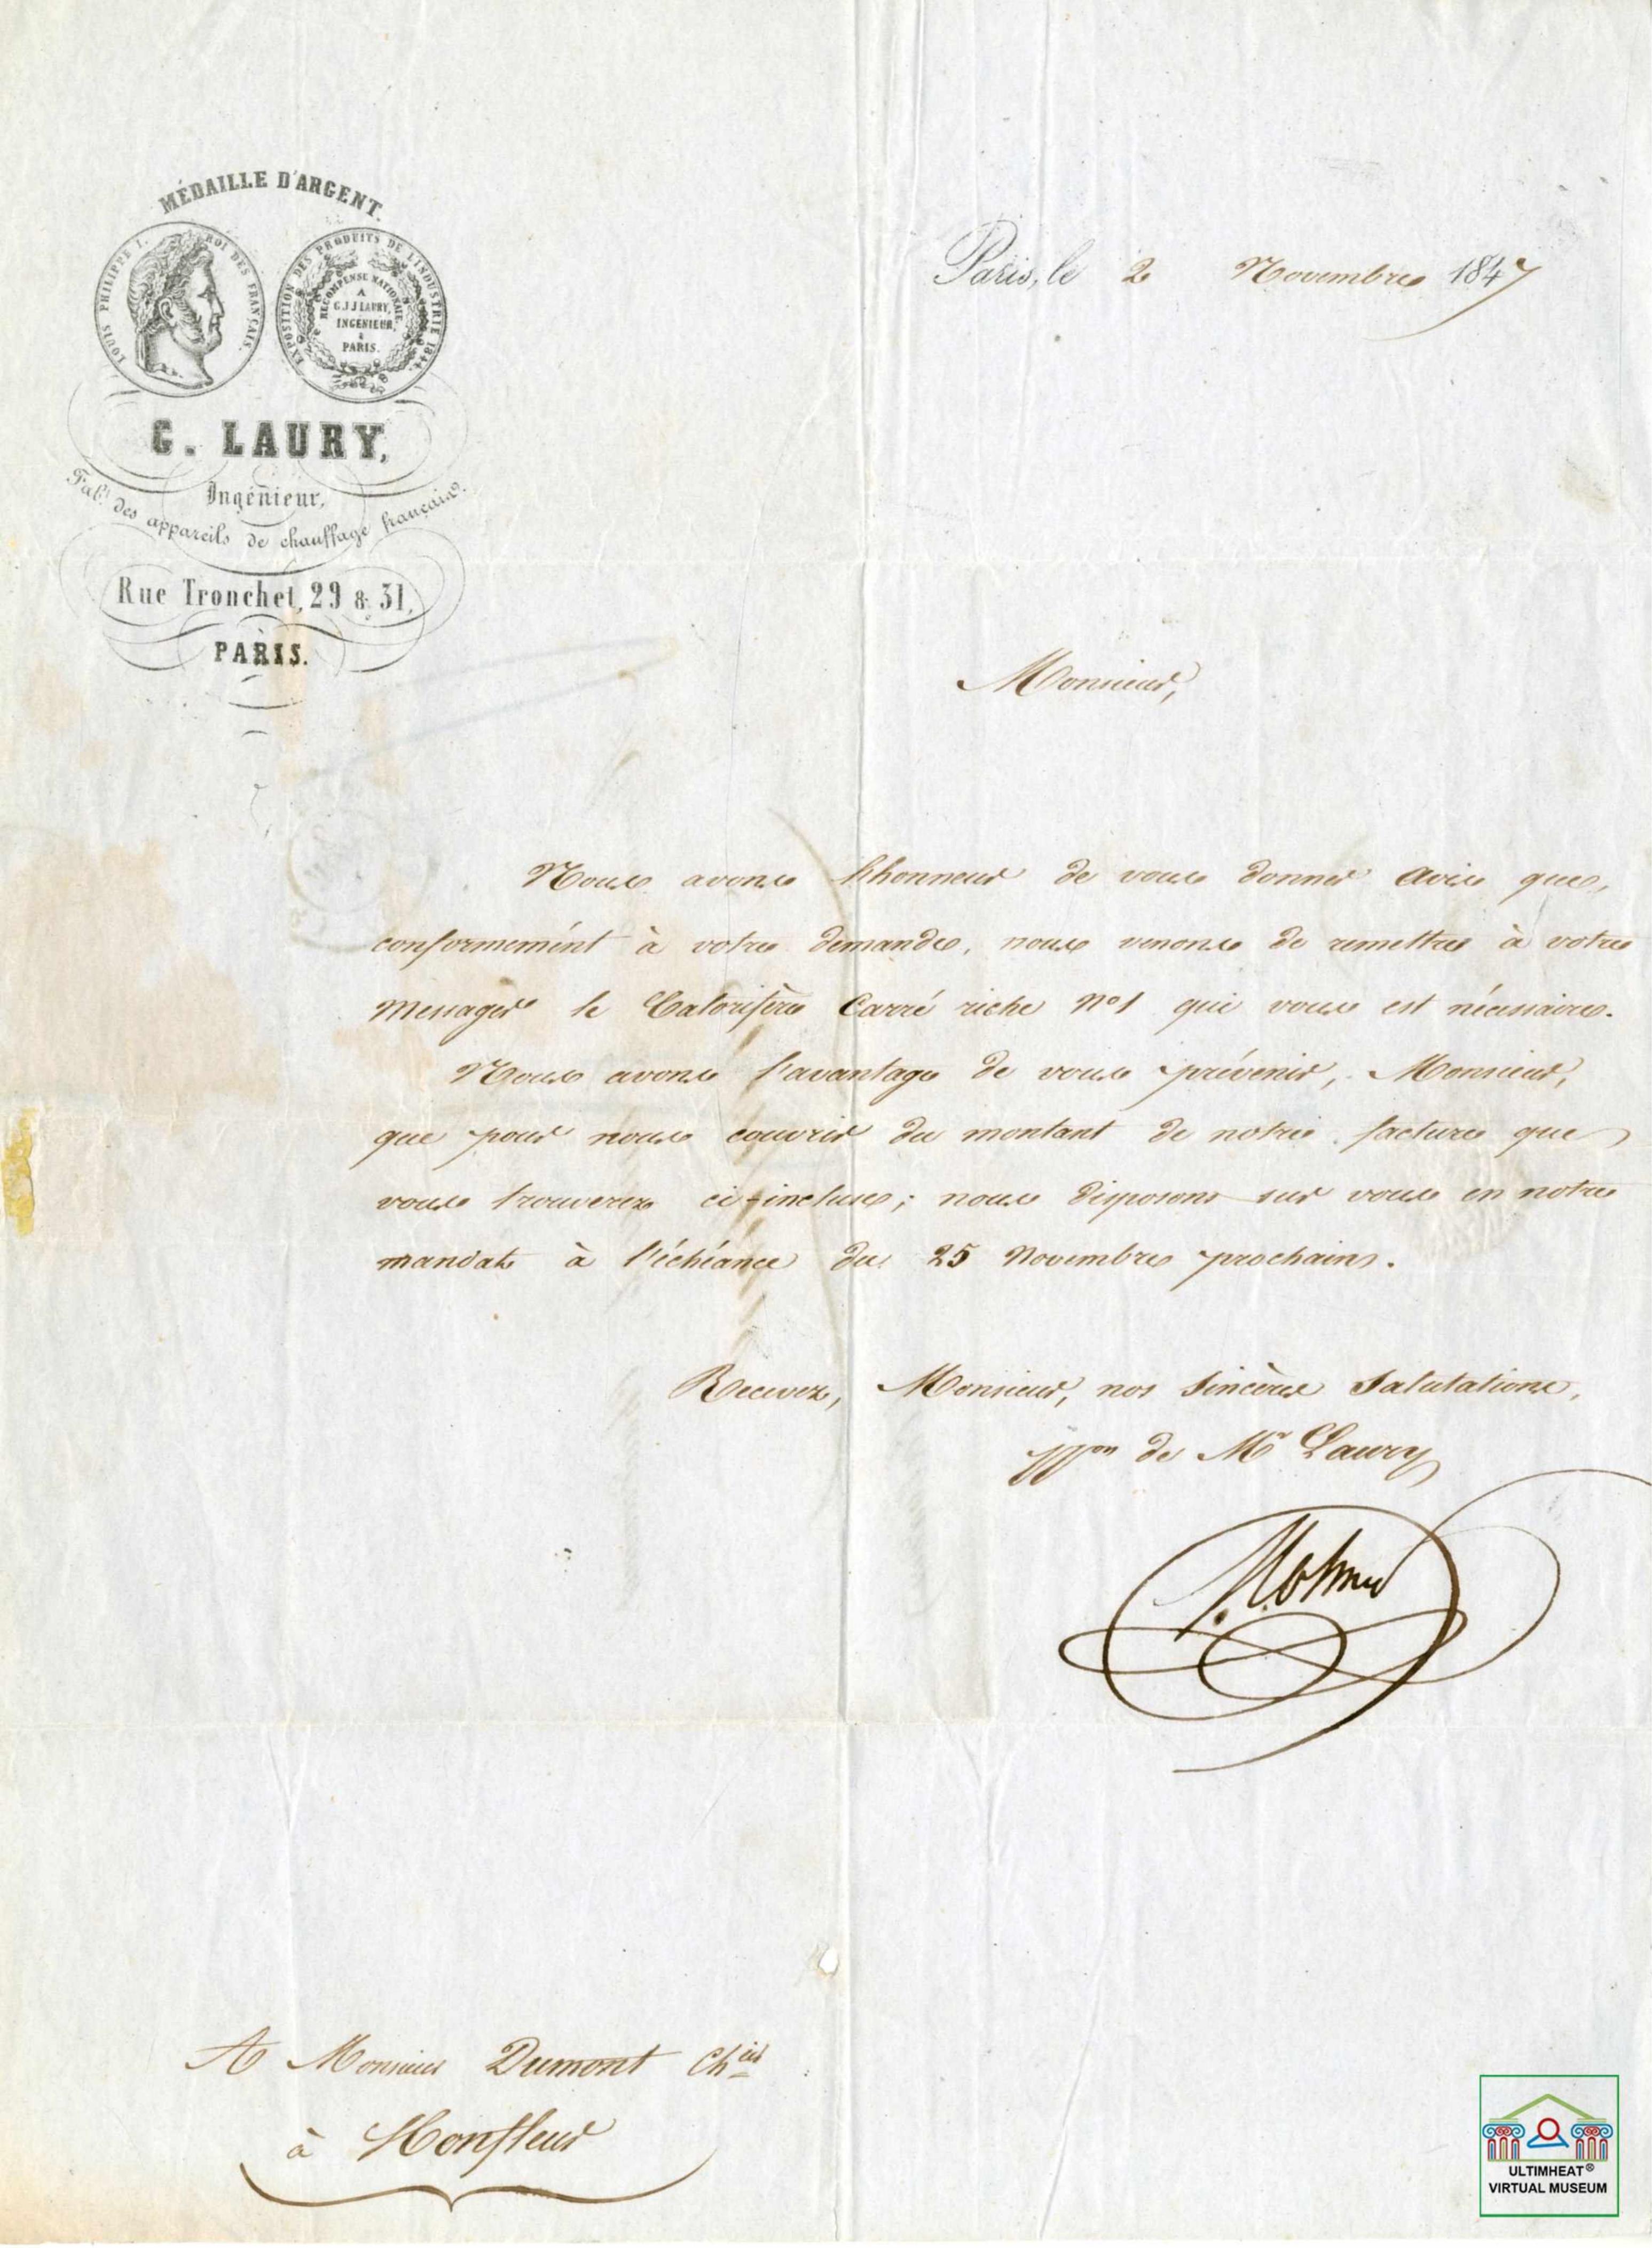 MÉDAILLE D'ARGENT.
LOUIS PHILIPPE I. ROI DES FRANÇAIS.
EXPOSITION DES PRODUITS DE L'INDUSTRIE 1844.
RÉCOMPENSE NATIONALE
A
G.J.J LAURY,
INGENIEUR,
à
PARIS.
G. LAURY,
Ingénieur,
Fabt. des appareils de chauffage français.
Rue Tronchet, 29 & 31,
PARIS.
Paris, le 2 Novembre 1847
Monsieur,
Nous avons l'honneur de vous donner avis que,
conformément à votre demande, nous venons de remettre à votre
Messager le Calorifère Carré riche N° 1 qui vous est nécessaire.
Nous avons l'avantage de vous prévenir, Monsieur,
que pour nous couvrir du montant de notre facture que
vous trouverez ci-incluse; nous disposons sur vous en notre
mandat à l'échéance du 25 Novembre prochain.
Recevez, Monsieur, nos sincères salutations,
ppon de Mr Laury
A Monsieur Dumont Chier
à Honfleur
ULTIMHEAT®
VIRTUAL MUSEUM